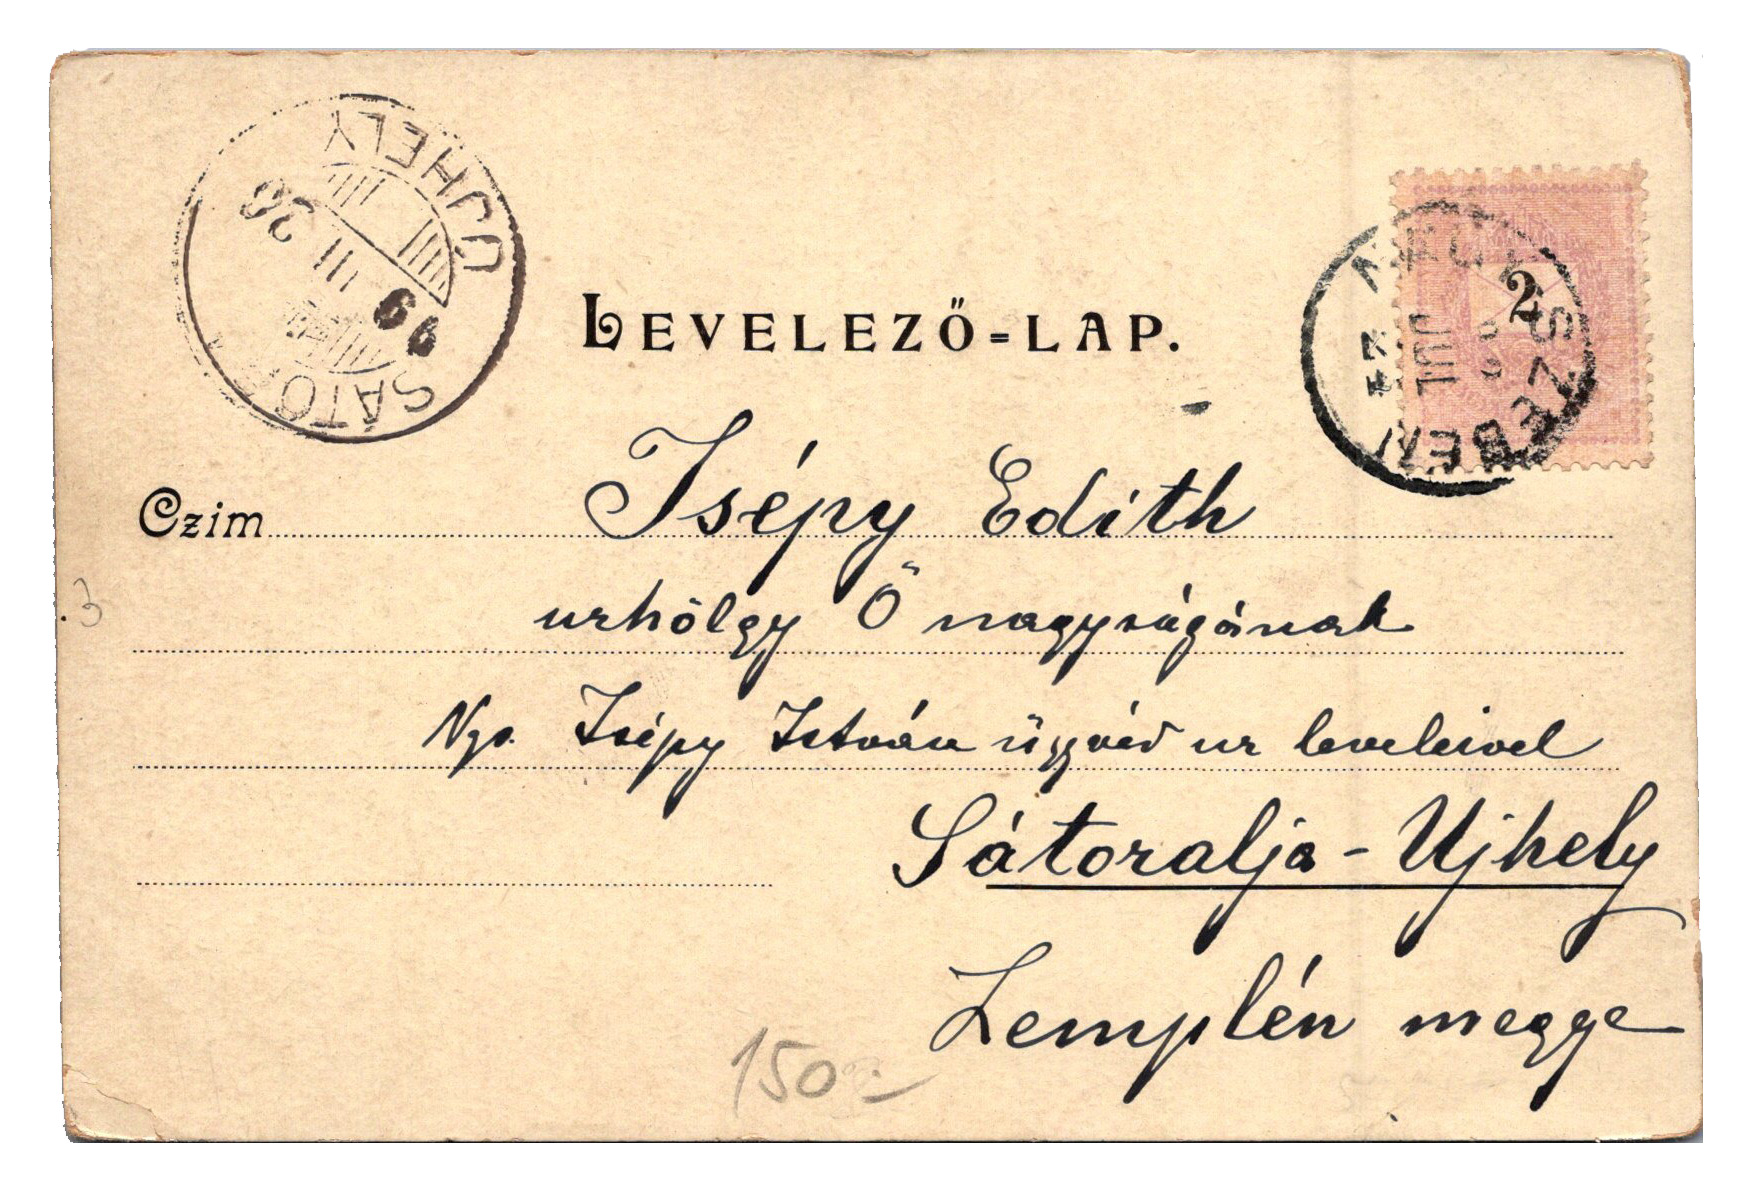 SÁTOR UJHELY
99 VII 26
LEVELEZŐ=LAP.
2
NAGY-SZEBEN
99 JUL
Czim
Isépy Edith
urhölgy Ő nagyságának
Ngs. Isépy István ügyvéd ur leveleivel
Sátoralja-Ujhely
Zemplén megye
150.-
3